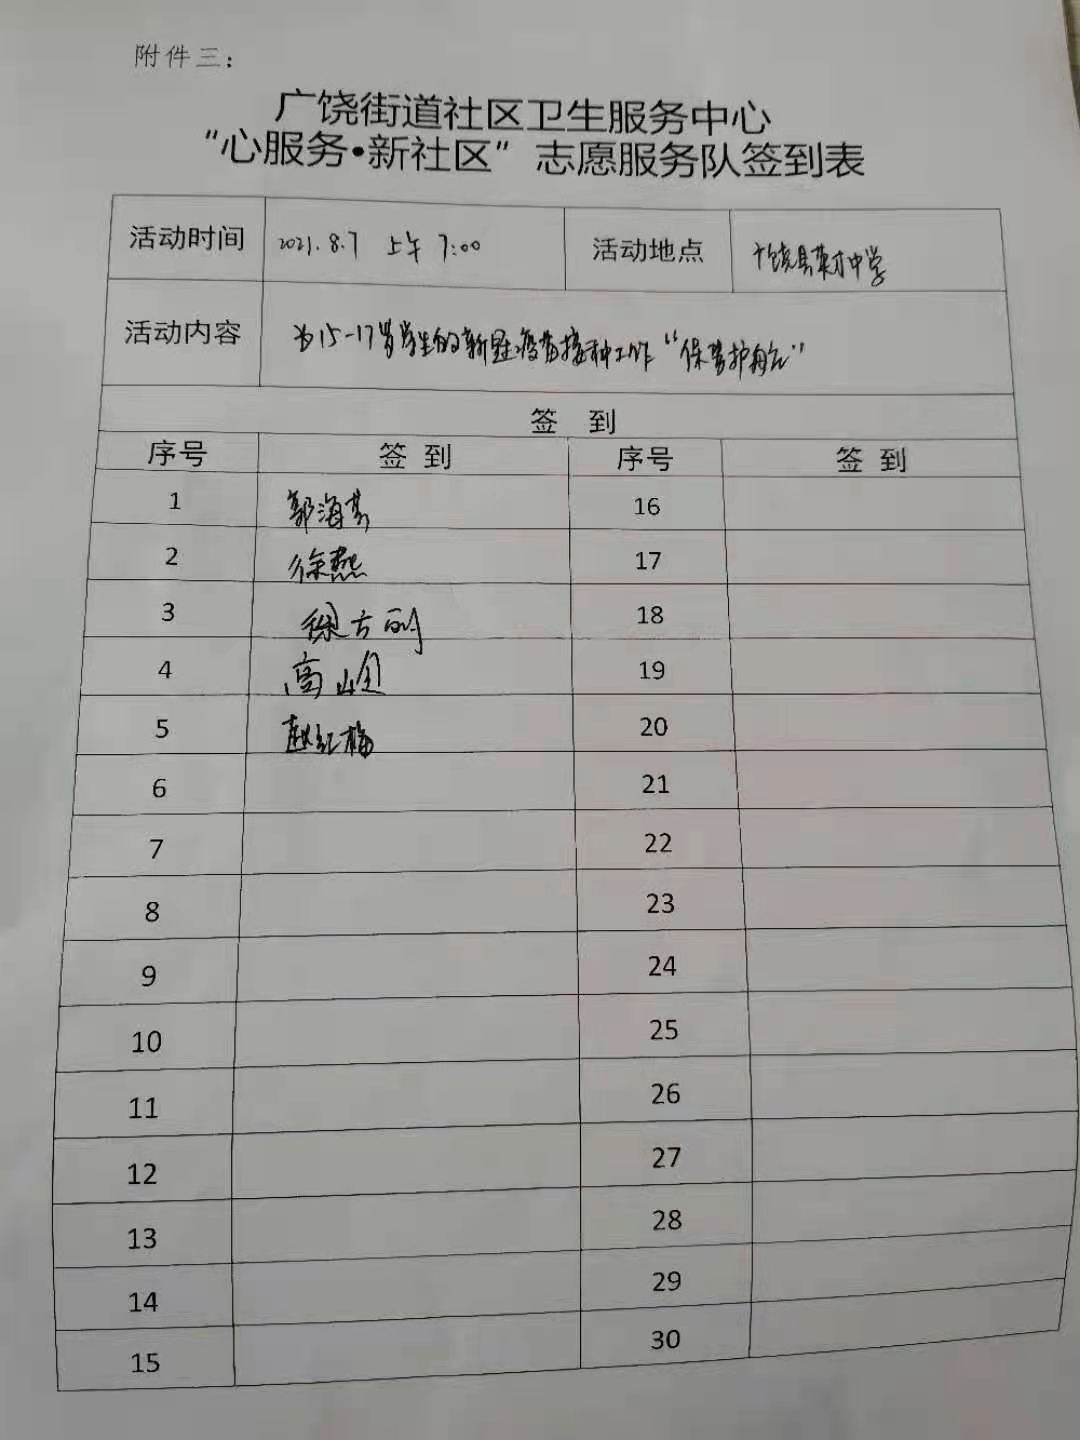 附件三：
广饶街道社区卫生服务中心
“心服务•新社区”志愿服务队签到表
活动时间 2021.8.7 上午 7:00 活动地点 广饶县英才中学
活动内容 为15-17岁学生的新冠疫苗接种工作“保驾护航”
签 到
序号 签 到 序号 签 到
1 郭海 16
2 徐燕 17
3 徐方 18
4 高峰 19
5 赵红梅 20
6 21
7 22
8 23
9 24
10 25
11 26
12 27
13 28
14 29
15 30